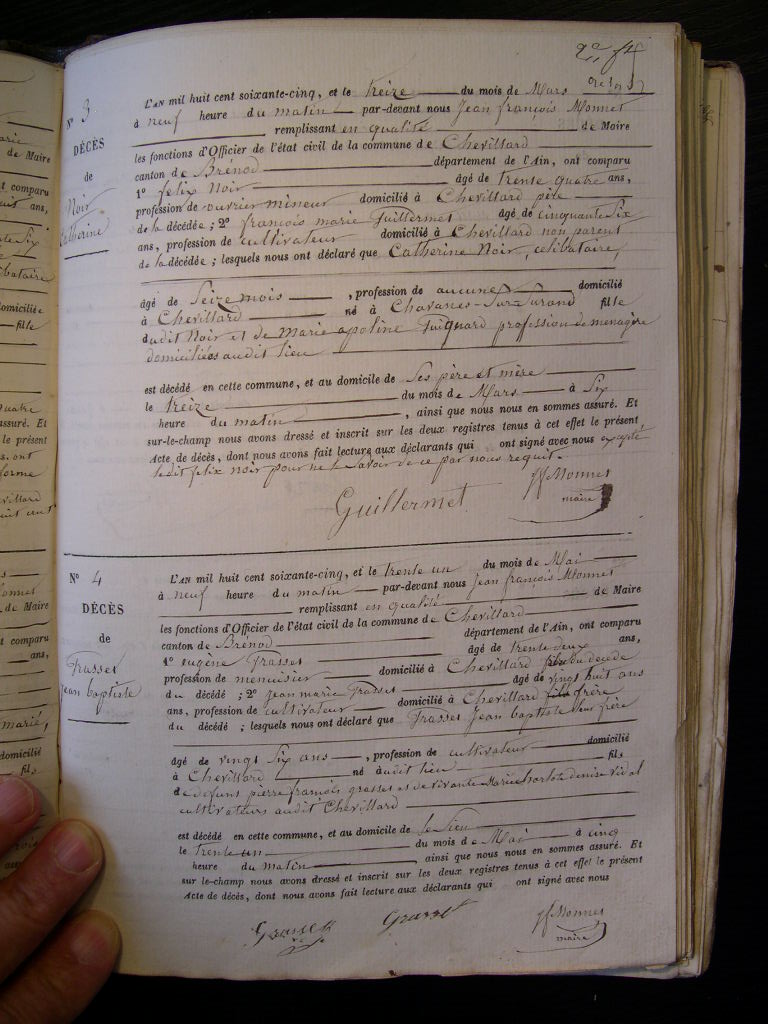 N° 3
DÉCÈS
de
Noir
Catherine
L'AN mil huit cent soixante-cinq, et le treize du mois de Mars
à neuf heure du matin par-devant nous Jean françois Monnet
remplissant en qualité de Maire
les fonctions d'Officier de l'état civil de la commune de Chevillard
canton de Brénod département de l'Ain, ont comparu
1° felix Noir âgé de trente quatre ans,
profession de ouvrier mineur domicilié à Chevillard père
de la décédée ; 2° françois marie Guillermet âgé de cinquante Six
ans, profession de cultivateur domicilié à Chevillard non parent
de la décédée ; lesquels nous ont déclaré que Catherine Noir, célibataire,
âgé de Seize mois , profession de aucune domicilié
à Chevillard né à Chavanes-Sur-Surand fille
dudit Noir et de Marie apoline Guiguard profession de menagère
domiciliées audit lieu
est décédé en cette commune, et au domicile de Ses père et mère
le treize du mois de Mars à Six
heure du matin , ainsi que nous nous en sommes assuré. Et
sur-le-champ nous avons dressé et inscrit sur les deux registres tenus à cet effet le présent
Acte de décès, dont nous avons fait lecture aux déclarants qui ont signé avec nous excepté
ledit felix noir pour ne le Savoir de ce par nous requit.
Guillermet
Jf Monnet
maire
N° 4
DÉCÈS
de
Grasset
Jean baptiste
L'AN mil huit cent soixante-cinq, et le trente un du mois de Mai
à neuf heure du matin par-devant nous Jean françois Monnet
remplissant en qualité de Maire
les fonctions d'Officier de l'état civil de la commune de Chevillard
canton de Brenod département de l'Ain, ont comparu
1° eugène Grasset âgé de trente deux ans,
profession de menuisier domicilié à Chevillard frère du décédé
du décédé ; 2° Jean marie Grasset âgé de vingt huit ans
ans, profession de cultivateur domicilié à Chevillard frère
du décédé ; lesquels nous ont déclaré que Grasset Jean baptiste leur frère
âgé de vingt Six ans , profession de cultivateur domicilié
à Chevillard né audit lieu fils
de defunt pierre françois grasset et de vivante Marie charlote denise Vidal
cultivateurs audit Chevillard
est décédé en cette commune, et au domicile de
le trente un du mois de Mai à cinq
heure du matin ainsi que nous nous en sommes assuré. Et
sur-le-champ nous avons dressé et inscrit sur les deux registres tenus à cet effet le présent
Acte de décès, dont nous avons fait lecture aux déclarants qui ont signé avec nous
Grasset
Grasset
Jf Monnet
maire